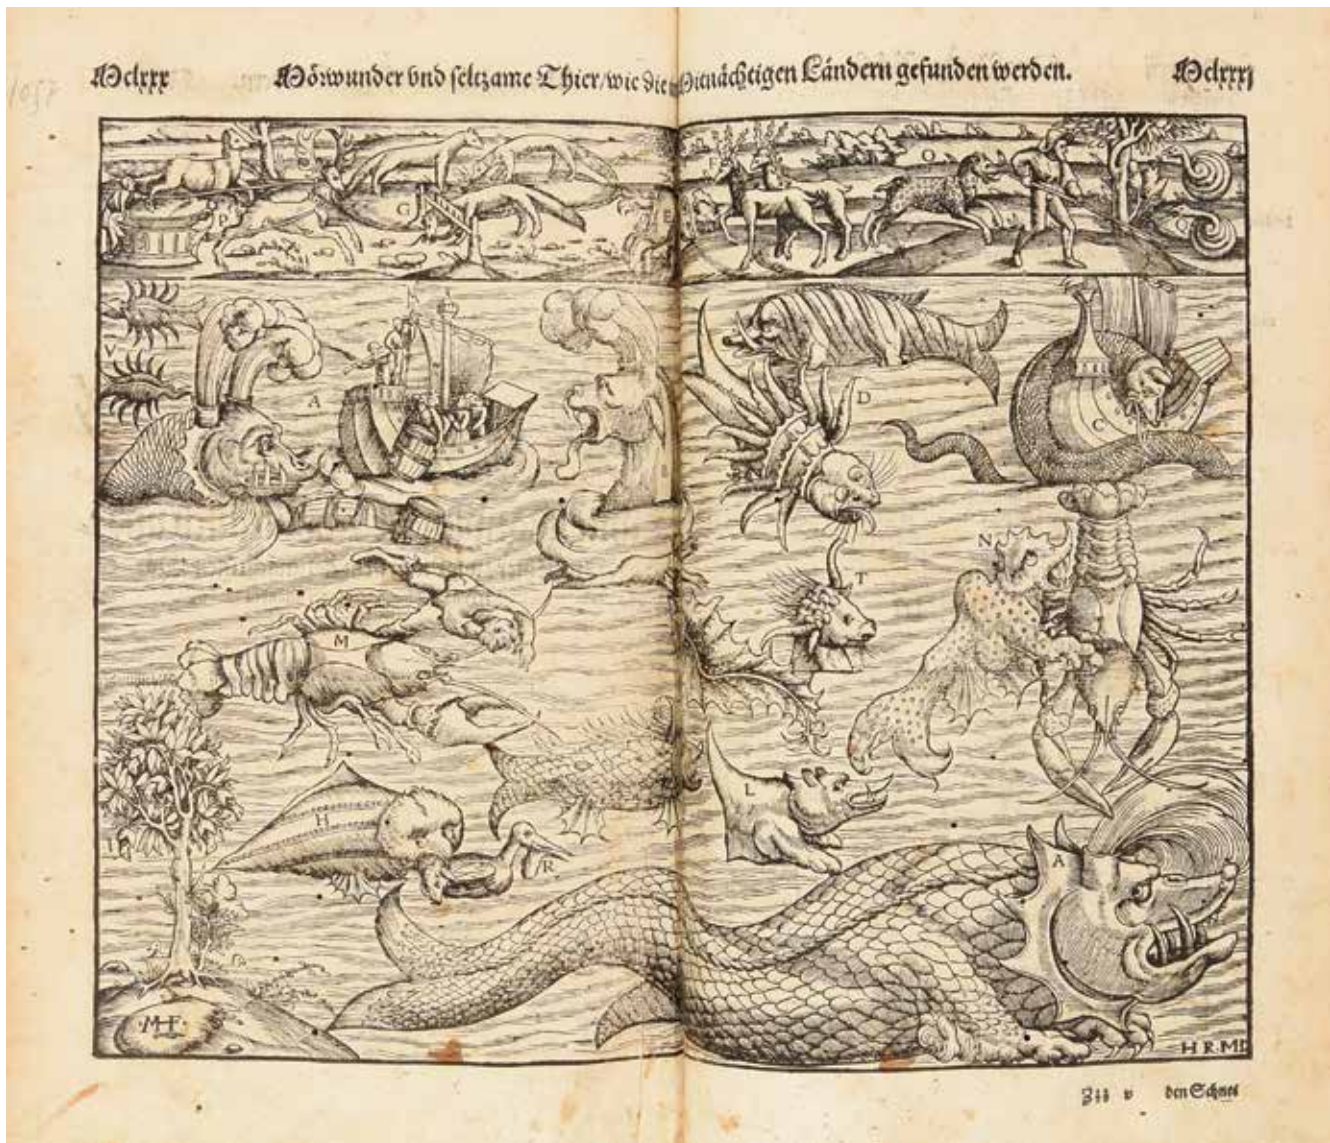 Mclxxx Mörwunder vnd seltzame Thier/wie die Mitnächtigen Ländern gefunden werden. Mclxxxj
P G E F O
V A B D C
N
T
M
L
H
R
A
MHF
H R MD
Zzz v den Schnes